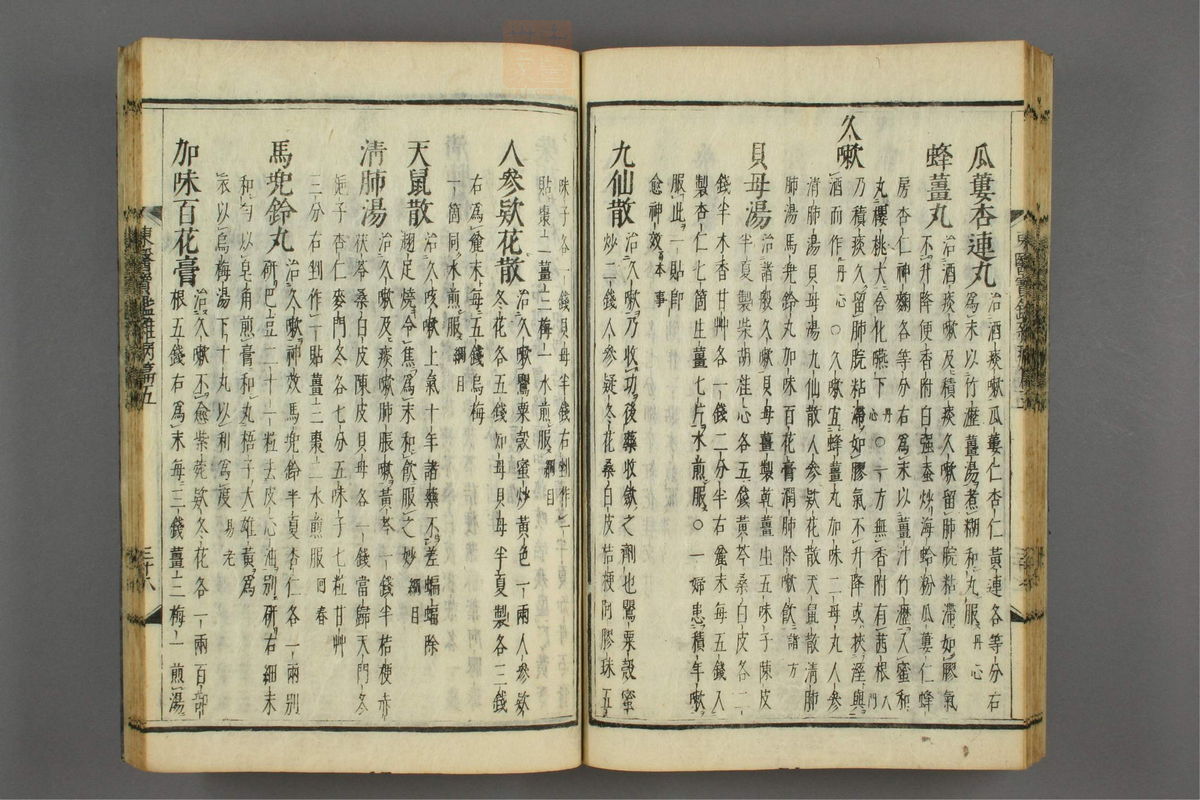 瓜蔞杏連丸治酒痰嗽瓜蔞仁杏仁黃連各等分右
爲末以竹瀝薑湯煮糊和丸服丹心
蜂薑丸治酒痰嗽及積痰久嗽留肺脘粘滯如膠氣
不升降便香附白殭蚕炒海蛤粉瓜蔞仁蜂
房杏仁神麴各等分右爲末以薑汁竹瀝入蜜和
丸櫻桃大含化嚥下丹心○一方無香附有茜根入門
久嗽乃積痰久留肺脘粘滯如膠氣不升降或挾溼與
酒而作丹心○久嗽宜蜂薑丸加味二母丸人參
清肺湯貝母湯九仙散人參款花散天鼠散清肺
肺湯馬兜鈴丸加味百花膏潤肺除嗽飮諸方
貝母湯治諸般久嗽貝母薑製乾薑生五味子陳皮
半夏製柴胡桂心各五錢黃芩桑白皮各二
錢半木香甘艸各一錢二分半右麁末每五錢入
製杏仁七箇生薑七片水煎服○一婦患積年嗽
服此一貼卽
愈神效本事
九仙散治久嗽乃收功後藥收斂之劑也罌粟殼蜜
炒二錢人參款冬花桑白皮桔梗阿膠珠五
味子各一錢貝母半錢右剉作一
貼棗二薑三梅一水煎服綱目
人參款花散治久嗽罌粟殼蜜炒黃色一兩人參款
冬花各五錢知母貝母半夏製各三錢
右爲麁末每五錢烏梅
一箇同水煎服綱目
天鼠散治久咳嗽上氣十年諸藥不差蝙蝠除
翅足燒令焦爲末和飮服之妙綱目
淸肺湯治久嗽及痰嗽肺脹嗽黃芩一錢半桔梗赤
茯苓桑白皮陳皮貝母各一錢當歸天門冬
梔子杏仁麥門冬各七分五味子七粒甘艸
三分右剉作一貼薑三棗二水煎服回春
馬兜鈴丸治久嗽神效馬兜鈴半夏杏仁各一兩別
研巴豆二十一粒去皮心油別研右細末
和勻以皂角煎膏和丸梧子大雄黃爲
衣以烏梅湯下十丸以利爲度易老
加味百花膏治久嗽不愈紫菀款冬花各一兩百部
根五錢右爲末每三錢薑三梅一煎湯
東醫寶鑑雜病篇五
三十八